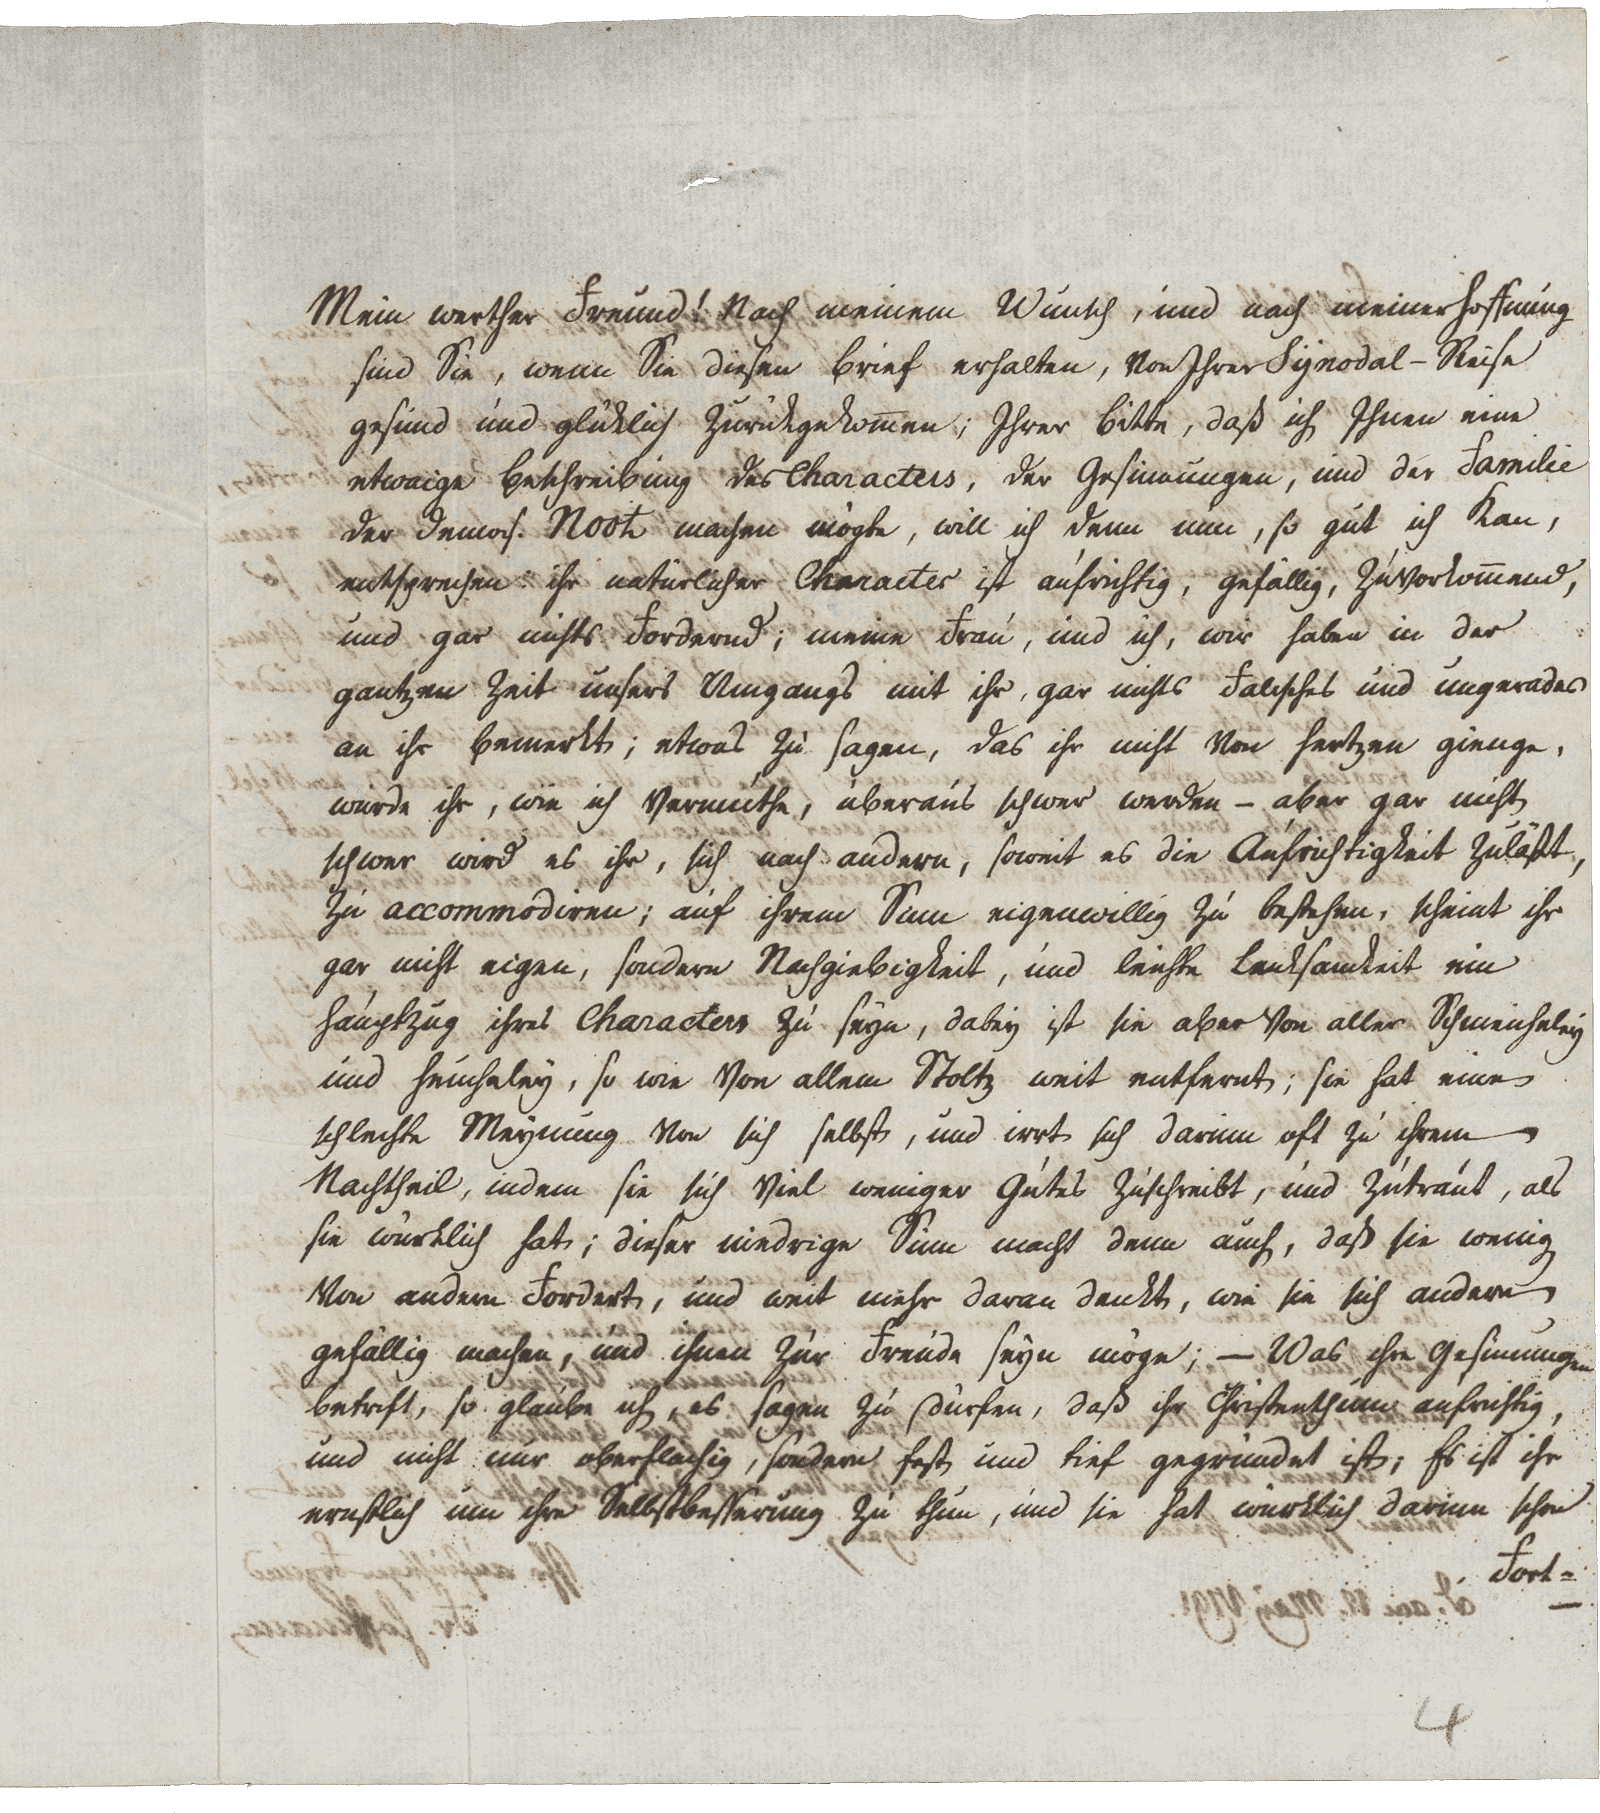 Mein werther Freund! Nach meinem Wunsch, und nach meiner Hoffnung
sind Sie, wenn Sie diesen Brief erhalten, von Ihrer Synodal-Reise
gesund und glüklich zurückgekom̅en; Ihrer Bitte, daß ich Ihnen eine
etwaige Beschreibung des Characters, der Gesinnungen, und der Familie
der Demois. Noot machen mögte, will ich denn nun, so gut ich kan,
entsprechen: ihr natürlicher Character ist aufrichtig, gefällig, zuvorkom̅end,
und gar nichts fordernd; meine Frau, und ich, wir haben in der
gantzen Zeit unsers Umgangs mit ihr, gar nichts falsches und ungerades
an ihr bemerkt; etwas zu sagen, das ihr nicht von Hertzen gienge,
würde ihr, wie ich vermuthe, überaus schwer werden – aber gar nicht
schwer wird es ihr, sich nach andern, soweit es die Aufrichtigkeit zuläßt,
zu accommodiren; auf ihrem Sinn eigenwillig zu bestehen, scheint ihr
gar nicht eigen, sondern Nachgiebigkeit, und leichte Lenksamkeit ein
Hauptzug ihres Characters zu seyn, dabey ist sie aber von aller Schmeicheley
und Heucheley, so wie von allem Stoltz weit entfernt; sie hat eine
schlechte Meynung von sich selbst, und irrt sich darinn oft zu ihrem
Nachtheil, indem sie sich viel weniger Gutes zuschreibt, und zutraut, als
sie würklich hat; dieser niedrige Sinn macht denn auch, daß sie wenig
von andern fordert, und weit mehr daran denkt, wie sie sich andern
gefällig machen, und ihnen zur Freude seyn möge; — Was ihre Gesinnungen
betrift, so glaube ich, es sagen zu dürfen, daß ihr Christenthum aufrichtig,
und nicht nur oberflächig, sondern fest und tief gegründet ist; Es ist ihr
ernstlich um ihre Selbstbesserung zu thun, und sie hat würklich darinn schon
Fort=
4